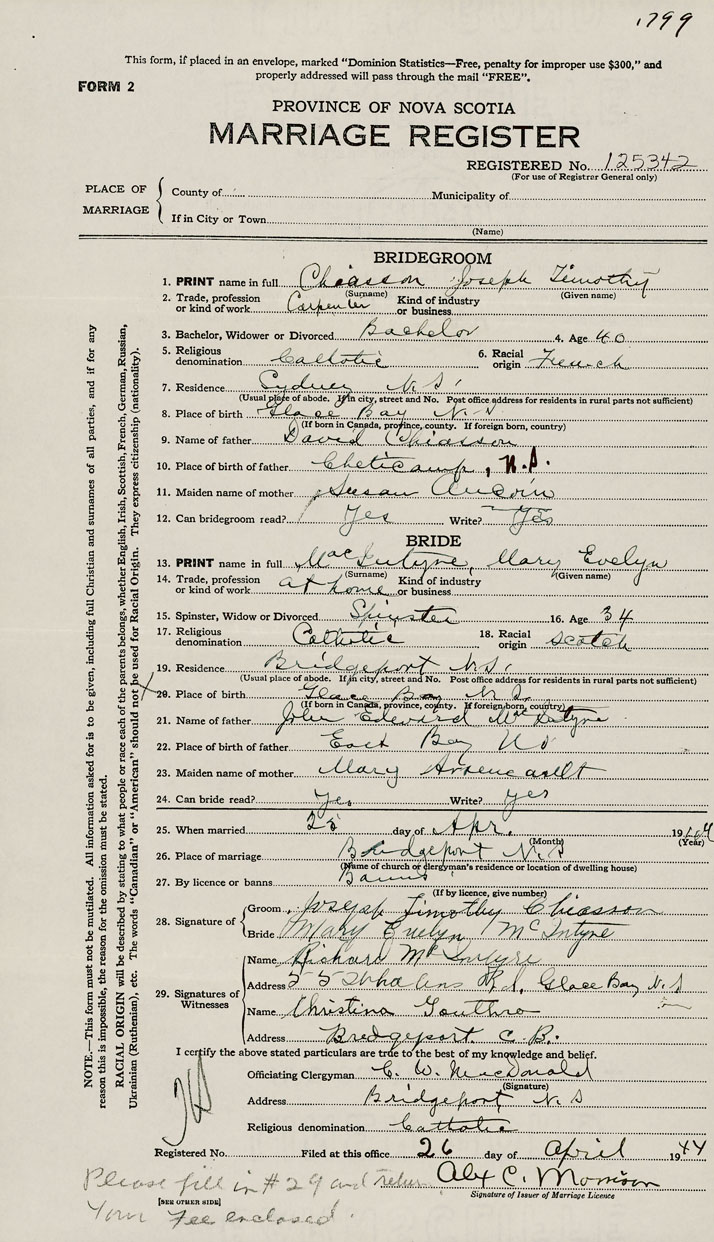 1799
This form, if placed in an envelope, marked "Dominion Statistics—Free, penalty for improper use $300," and
properly addressed will pass through the mail "FREE".
FORM 2
PROVINCE OF NOVA SCOTIA
MARRIAGE REGISTER
REGISTERED No. 125342
(For use of Registrar General only)
PLACE OF MARRIAGE
County of Municipality of
If in City or Town
(Name)
BRIDEGROOM
1. PRINT name in full Chiasson Joseph Timothy
(Surname) (Given name)
2. Trade, profession or kind of work Carpenter Kind of industry or business
3. Bachelor, Widower or Divorced Bachelor 4. Age 40
5. Religious denomination Catholic 6. Racial origin French
7. Residence Sydney N.S.
(Usual place of abode. If in city, street and No. Post office address for residents in rural parts not sufficient)
8. Place of birth Glace Bay N.S
(If born in Canada, province, county. If foreign born, country)
9. Name of father David Chiasson
10. Place of birth of father Cheticamp, N.S.
11. Maiden name of mother Susan Aucoin
12. Can bridegroom read? Yes Write? Yes
BRIDE
13. PRINT name in full MacIntyre, Mary Evelyn
(Surname) (Given name)
14. Trade, profession or kind of work at home Kind of industry or business
15. Spinster, Widow or Divorced Spinster 16. Age 34
17. Religious denomination Catholic 18. Racial origin Scotch
19. Residence Bridgeport N.S.
(Usual place of abode. If in city, street and No. Post office address for residents in rural parts not sufficient)
20. Place of birth Glace Bay N.S.
(If born in Canada, province, county. If foreign born, country)
21. Name of father John Edward McIntyre
22. Place of birth of father East Bay NS
23. Maiden name of mother Mary Arseneault
24. Can bride read? Yes Write? yes
25. When married 25 day of Apr. 1944
(Month) (Year)
26. Place of marriage Bridgeport N.S
(Name of church or clergyman's residence or location of dwelling house)
27. By licence or banns Banns
(If by licence, give number)
28. Signature of
Groom Joseph Timothy Chiasson
Bride Mary Evelyn McIntyre
29. Signatures of Witnesses
Name Richard McIntyre
Address 55 Rd, Glace Bay N.S
Name Christina Gouthro
Address Bridgeport C.B.
I certify the above stated particulars are true to the best of my knowledge and belief.
Officiating Clergyman C. W. MacDonald
(Signature)
Address Bridgeport N.S
Religious denomination Catholic
Registered No. Filed at this office 26 day of April 1944
Alex C. Morrison
Signature of Issuer of Marriage Licence
Please fill in #29 and return
[SEE OTHER SIDE]
Your Fee enclosed.
NOTE.—This form must not be mutilated. All information asked for is to be given, including full Christian and surnames of all parties, and if for any
reason this is impossible, the reason for the omission must be stated.
RACIAL ORIGIN will be described by stating to what people or race each of the parents belongs, whether English, Irish, Scottish, French, German, Russian,
Ukrainian (Ruthenian), etc. The words "Canadian" or "American" should not be used for Racial Origin. They express citizenship (nationality).